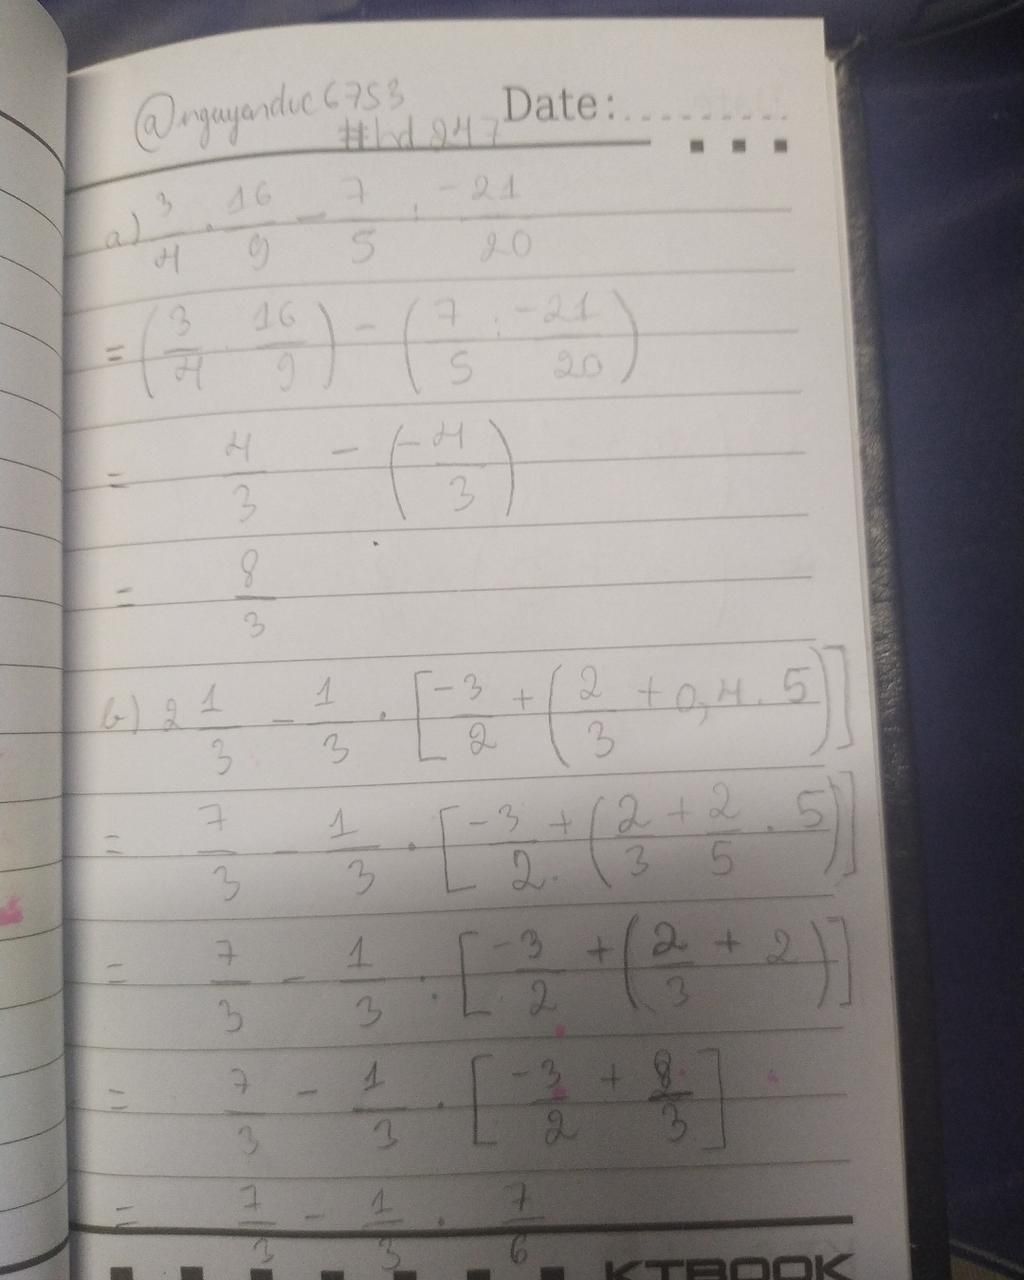 @nguyenduc6753
#hd247
Date:
a) 3/4 . 16/9 - 7/5 : -21/20
= (3/4 . 16/9) - (7/5 : -21/20)
= 4/3 - (-4/3)
= 8/3
b) 2 1/3 - 1/3 . [-3/2 + (2/3 + 0,4 . 5)]
= 7/3 - 1/3 . [-3/2 + (2/3 + 2/5 . 5)]
= 7/3 - 1/3 . [-3/2 + (2/3 + 2)]
= 7/3 - 1/3 . [-3/2 + 8/3]
= 7/3 - 1/3 . 7/6
KTBOOK